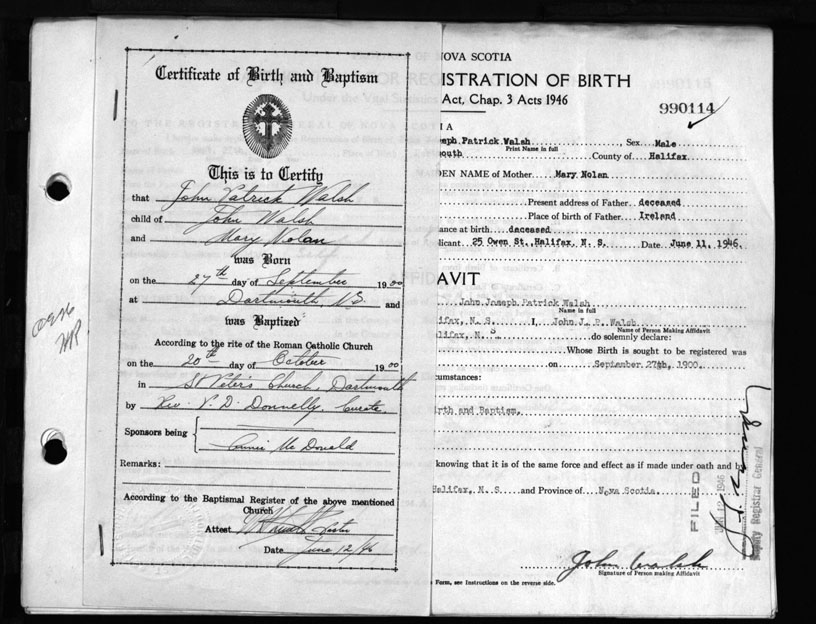 Certificate of Birth and Baptism
This is to Certify
that John Patrick Walsh
child of John Walsh
and Mary Nolan
was Born
on the 27th day of September 1900
at Dartmouth, NS and
was Baptized
According to the rite of the Roman Catholic Church
on the 20th day of October 1900
in St Peter's Church, Dartmouth
by Rev. Donnelly, Curate
Sponsors being
Annie McDonald
Remarks:
According to the Baptismal Register of the above mentioned
Church
Attest
Date June 12/46
NOVA SCOTIA
ISTRATION OF BIRTH
Act, Chap. 3 Acts 1946
990114
IA
seph Patrick Walsh Sex Male
Print Name in full
outh County of Halifax
DEN NAME of Mother Mary Nolan
Present address of Father deceased
Place of birth of Father Ireland
ance at birth deceased
licant 25 Owen St., Halifax, N. S. Date June 11, 1946.
AVIT
John Joseph Patrick Walsh
Name in full
lifax, N. S. I, John J. P. Walsh
Name of Person Making Affidavit
lifax, N. S do solemnly declare:
Whose Birth is sought to be registered was
on September 27th, 1900.
cumstances:
irth and Baptism.
knowing that it is of the same force and effect as if made under oath and by
Halifax, N. S and Province of Nova Scotia.
FILED
12 1946
Deputy Registrar General
John Walsh
Signature of Person making Affidavit
Form, see Instructions on the reverse side.